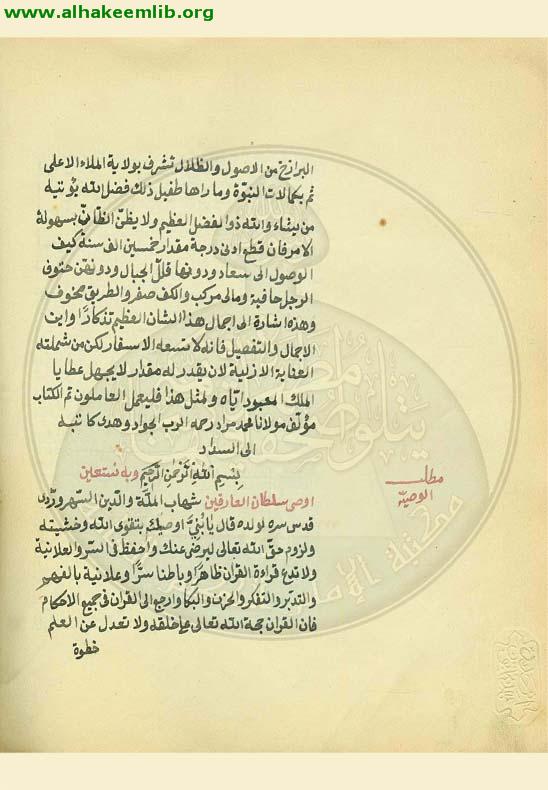 www.alhakeemlib.org
البرازخ من الاصول والظلال تشرف بولاية الملاء الاعلى
ثم بكمالات النبوة وما راها طفيل ذلك فضل الله يؤتيه
من يشاء والله ذو الفضل العظيم ولا يظن الظان بسهولة
الامر فان قطع ادنى درجة مقدار خمسين الف سنة كيف
الوصول الى سعاد ودونها قلل الجبال ودونهن حتوف
الرجل حافية ومالى مركب والكف صفر والطريق مخوف
وهذه اشارة الى اجمال هذا الشان العظيم تذكارا واين
الاجمال والتفصيل فانه لا تسعه الاسفار لكن من شملته
العناية الازلية لان يقدر له مقدار لا يجهل عطايا
الملك المعبود اياه ولمثل هذا فليعمل العاملون تم الكتاب
مؤلف مولانا محمد مراد رحمه الرب الجواد وهدى كاتبه
الى السداد
بسم الله الرحمن الرحيم وبه نستعين
مطلب
الوصية
اوصى سلطان العارفين شهاب الملة والدين السهروردى
قدس سره لولده قال يا بنى اوصيك بتقوى الله وخشيته
ولزوم حق الله تعالى ليرضى عنك واحفظ فى السر والعلانية
ولا تدع قراءة القران ظاهرا وباطنا سرا وعلانية بالفهم
والتدبر والتفكر والحزن والبكا وارجع الى القران فى جميع الاحكام
فان القران حجة الله تعالى على خلقه ولا تعدل عن العلم
خطوة